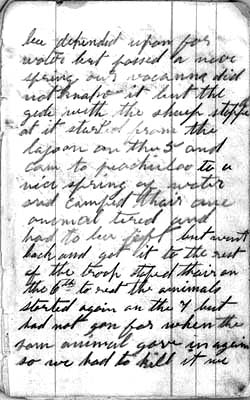 bee depended upon for
water but passed a nice
spring our vacanna did
not know it but the
gide with the sheep stopfe
at it started from the
lagoon on the 5 and
cam to peachuloo to a
nice spring of water
and camped thair one
animal tired and
had to bee left but went
back and got it to the rest
of the troop stoped thair on
the 6th to rest the animals
started again on the 7 but
had not gon far when the
sam animal gave in again
so we had to kill it we